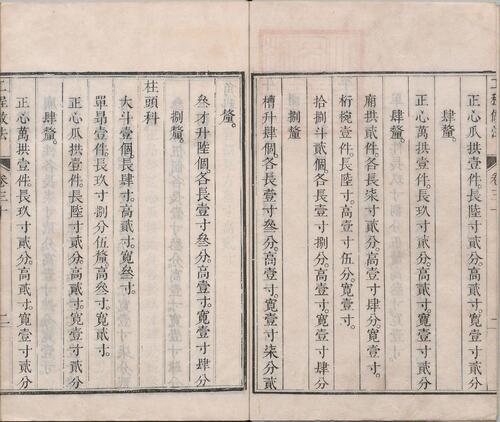 正心瓜拱壹件。長陸寸貳分。高貳寸。寬壹寸貳分
肆釐。
正心萬拱壹件。長玖寸貳分。高貳寸。寬壹寸貳分
肆釐。
廂拱貳件。各長柒寸貳分。高壹寸肆分。寬壹寸。
桁椀壹件。長陸寸。高壹寸伍分。寬壹寸。
拾捌斗貳個。各長壹寸捌分。高壹寸。寬壹寸肆分
捌釐
槽升肆個。各長壹寸叁分。高壹寸。寬壹寸柒分貳
釐。
叁才升陸個。各長壹寸叁分。高壹寸。寬壹寸肆分
捌釐。
柱頭科
大斗壹個。長肆寸。高貳寸。寬叁寸。
單昂壹件。長玖寸捌分伍釐。高叁寸。寬貳寸。
正心瓜拱壹件。長陸寸貳分。高貳寸。寬壹寸貳分
肆釐。
正心萬拱壹件。長玖寸貳分。高貳寸。寬壹寸貳分
工程做法 卷三十 二